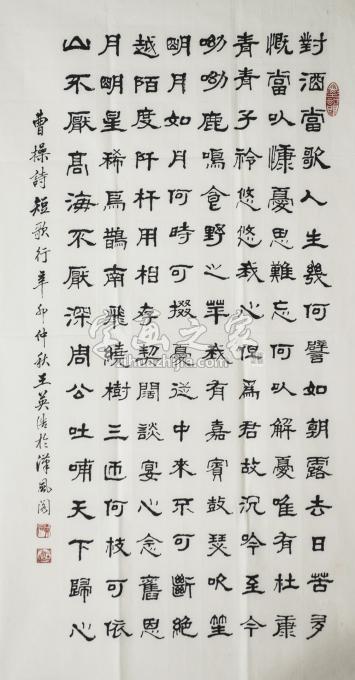 對酒當歌人生幾何譬如朝露去日苦多
慨當以慷憂思難忘何以解憂唯有杜康
青青子衿悠悠我心但為君故沉吟至今
呦呦鹿鳴食野之苹我有嘉賓鼓瑟吹笙
明月如月何時可掇憂從中來不可斷絕
越陌度阡枉用相存契闊談宴心念舊恩
月明星稀烏鵲南飛繞樹三匝何枝可依
山不厭高海不厭深周公吐哺天下歸心
曹操詩短歌行辛卯仲秋王英浩於漢風閣
字画之家